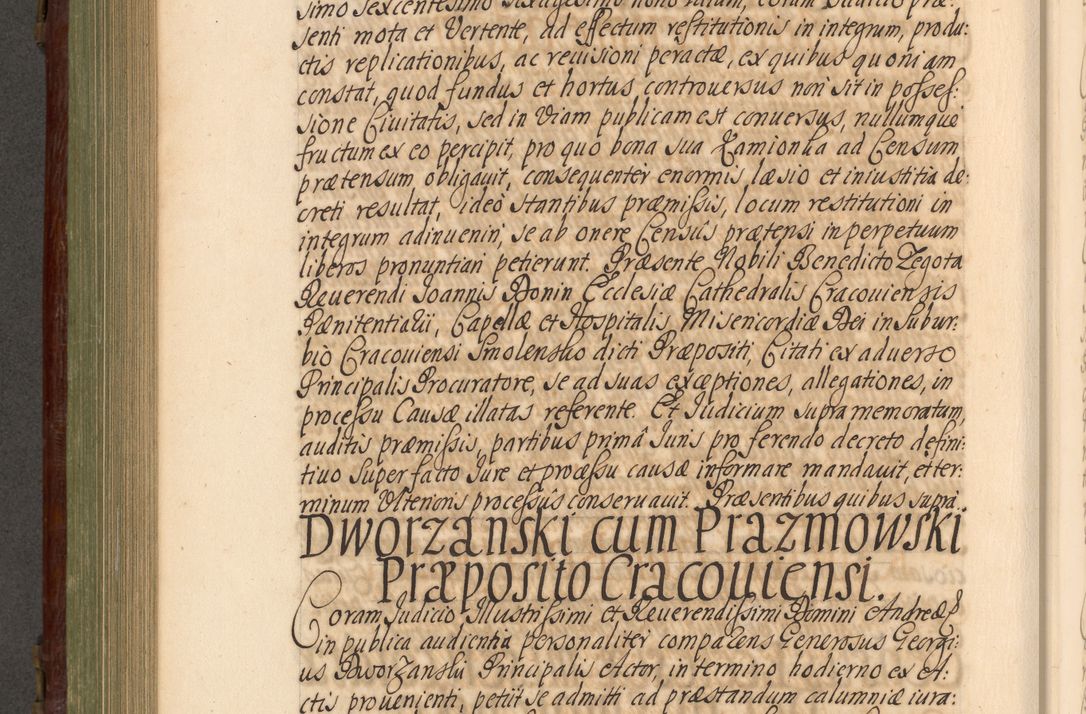 simo sexcentesimo sexagesimo nono latum, coram Judicio præ:
senti mota et Vertente, ad effectum restitutionis in integrum, produ:
ctis replicationibus, ac reuisioni peractæ, ex quibus quoniam
constat, quod fundus et hortus, controuersus non sit in posses:
sione Ciuitatis, sed in Viam publicam est conuersus, nullumque
fructum ex eo percipit, pro quo bona sua Kamionka ad Censum
prætensum obligauit, consequenter enormis læsio et iniustitia de:
creti resultat, ideo stantibus præmissis, locum restitutioni in
integrum adinueniri, se ab onere Censûs prætensi in perpetuum
liberos pronuntiari petierunt. Præsente Nobili Benedicto Zegota
Reuerendi Joannis Ronin Ecclesiæ Cathedralis Cracouiensis
Pænitentiarii, Capellæ et Hospitalis Misericordiæ Dei in subur:
bio Cracouiensi Smolensko dicti Præpositi, Citati ex aduerso
Principalis Procuratore, se ad suas exceptiones, allegationes, in
processu Causæ illatas referente. Et Judicium supra memoratum,
auditis præmissis, partibus primâ Juris pro ferendo decreto defini:
tiuo super facto Jure et processu causæ informare mandauit, et ter:
minum Vlterioris processûs conseruauit. Præsentibus quibus supra.
Dworzanski cum Prazmowski
Præposito Cracouiensi.
Coram Judicio Illustrissimi et Reuerendissimi Domini Andreæ
in publica audientia personaliter comparens Generosus Georgi:
us Dworzanski Principalis Actor, in termino hodierno ex A:
ctis prouenienti, petiit se admitti ad præstandum calumniæ iura: